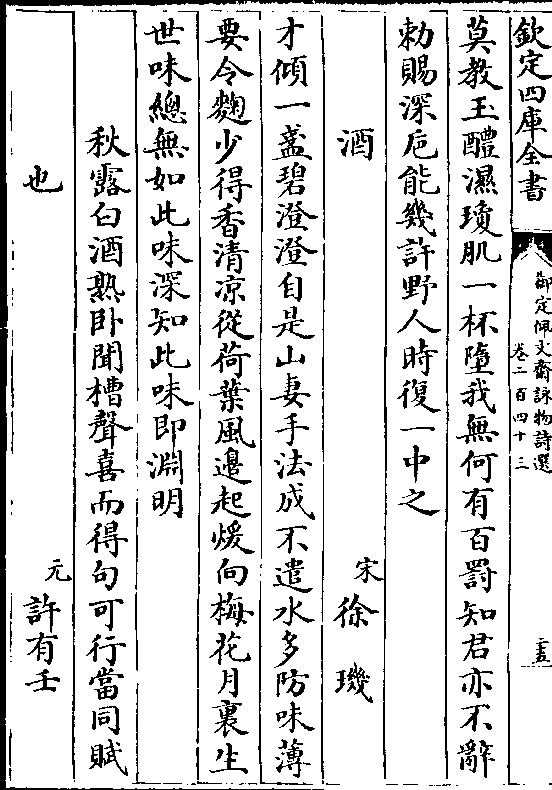 欽定四庫全書
御定佩文齋詠物詩選
卷二百四十三
莫教玉醴濕瓊肌一杯墮我無何有百罰知君亦不辭
勅賜深巵能幾許野人時復一中之
酒
宋 徐璣
才傾一盞碧澄澄自是山妻手法成不遣水多防味薄
要令麴少得香清凉從荷葉風邊起煖向梅花月裏生
世味總無如此味深知此味即淵明
秋露白酒熟卧聞槽聲喜而得句可行當同賦
也
元 許有壬